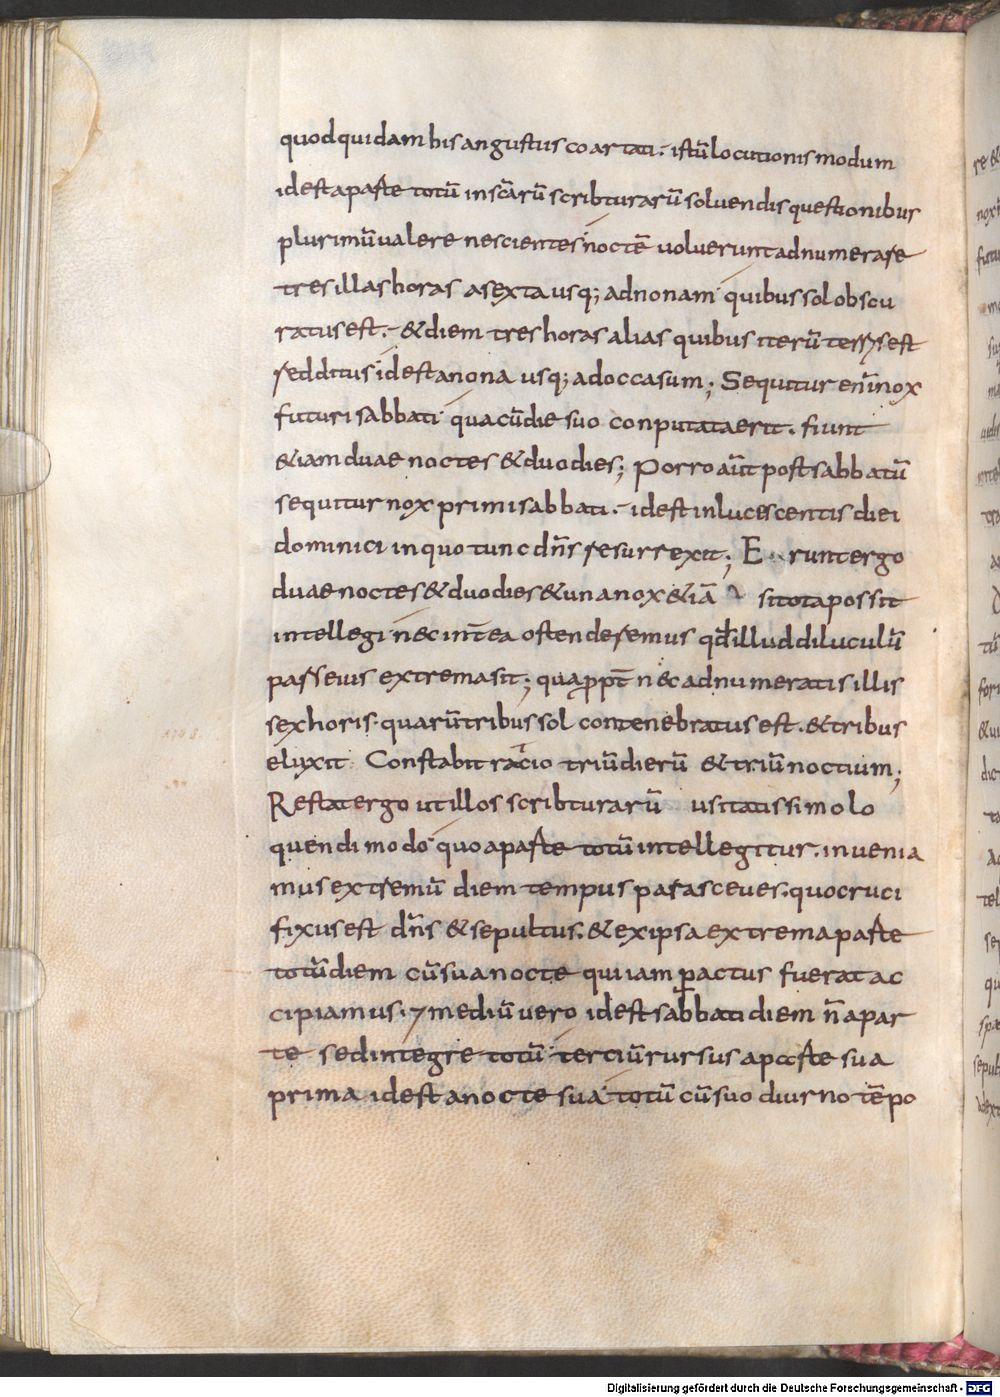 quod quidam his angustus coartati. istū locutionis modum
id est a parte totū in scārū scribturarū solvendis questionibus
plurimū valere nescientes noctē voluerunt adnumerare
tres illas horas a sexta usq; ad nonam quibus sol obscu
ratus est. & diem tres horas alias quibus iterū terrys est
redditus id est a nona usq; ad occasum; Sequitur enī nox
futuri sabbati qua cū die suo conputata erit. fiunt
&iam duae noctes & duo dies; Porro aūt post sabbatū
sequitur nox primi sabbati. id est inlucescentis diei
dominici in quo tunc dn̄s resurrexit; E runt ergo
duae noctes & duo dies & una nox &iā si tota possit
intellegi n&c intea ostenderemus qđ illud diluculū
pars eius extrema sit; quapropt̄ n&c adnumeratis illis
sex horis. quarū tribus sol contenebratus est. & tribus
eluxit Constabit racio triū dierū & triū noctium;
Restat ergo ut illos scribturarū usitatissimo lo
quendi modo quo a parte totū intellegitur. invenia
mus extremū diem tempus parasceves. quo cruci
fixus est dn̄s & sepultus. & ex ipsa extrema parte
totū diem cū sua nocte qui iam ꝑactus fuerat ac
cipiamus. 7 mediū vero id est sabbati diem n̄ a par
te sed integre totū terciū rursus a parte sua
prima id est a nocte sua totū cū suo diurno tēpo
Digitalisierung gefördert durch die Deutsche Forschungsgemeinschaft - DFG